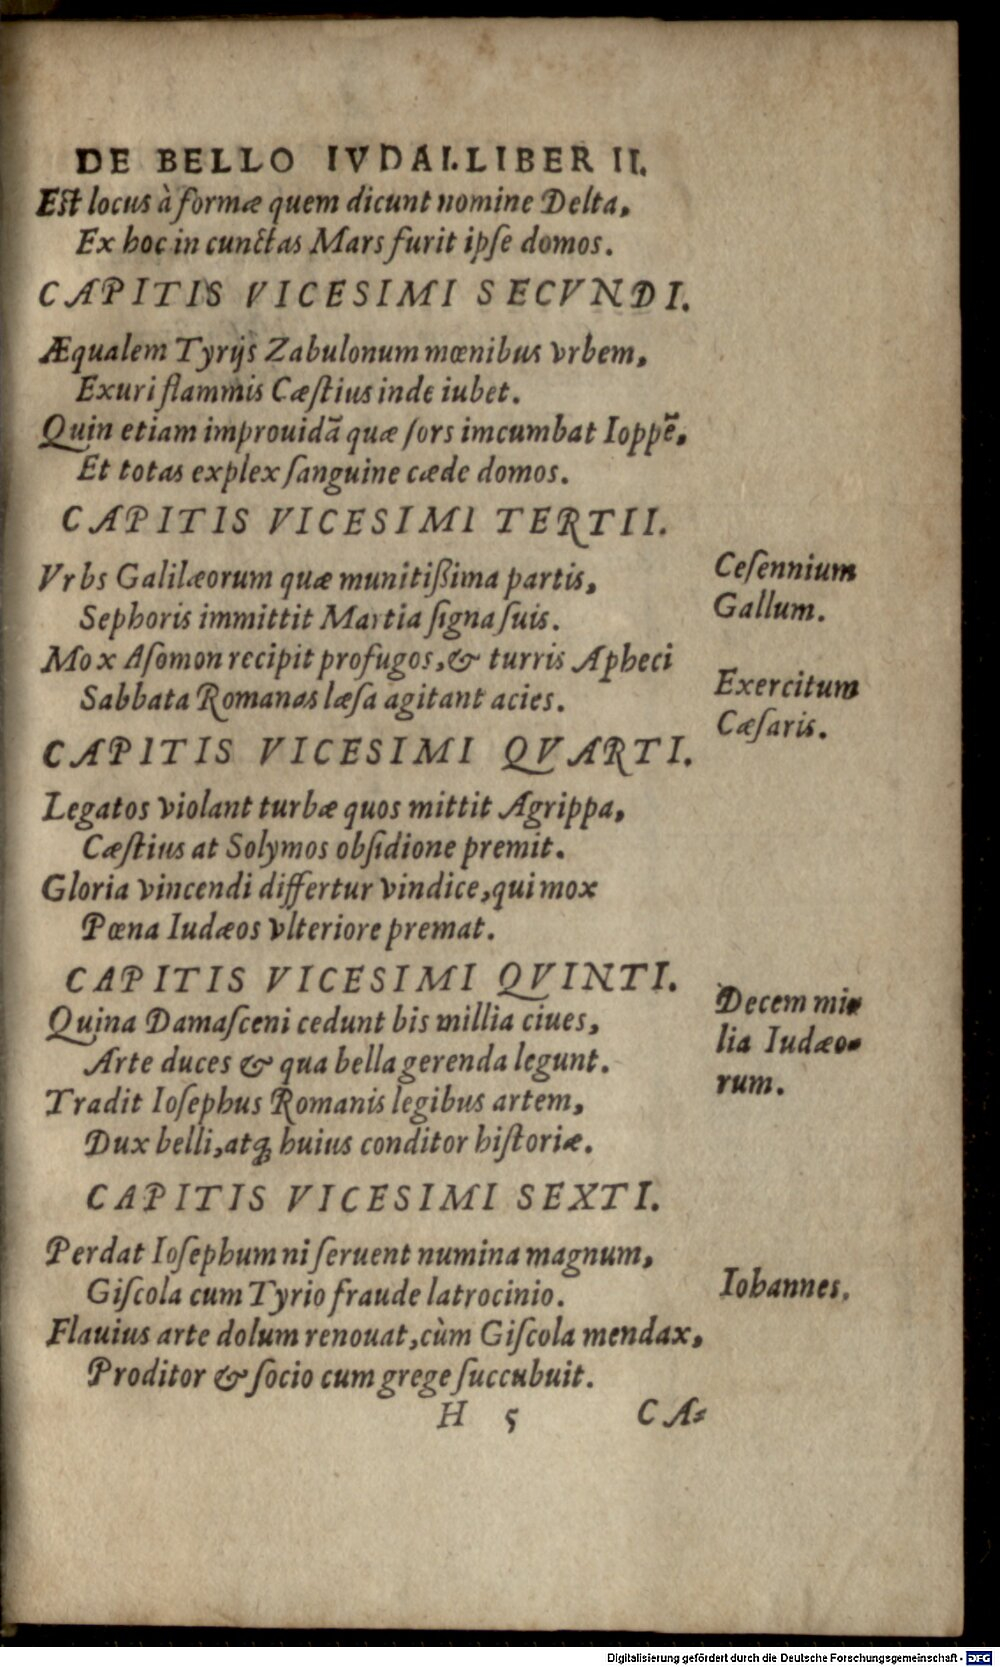 DE BELLO IVDAI.LIBER II.
Est locus à formæ quem dicunt nomine Delta,
Ex hoc in cunctas Mars furit ipſe domos.
CAPITIS VICESIMI SECVNDI.
Æqualem Tyrijs Zabulonum mœnibus vrbem,
Exuri flammis Cæſtius inde iubet.
Quin etiam improuidã quæ ſors imcumbat Ioppẽ,
Et totas explex ſanguine cæde domos.
CAPITIS VICESIMI TERTII.
Vrbs Galilæorum quæ munitißima partis,
Sephoris immittit Martia ſigna ſuis.
Mox Aſomon recipit profugos, & turris Apheci
Sabbata Romanas læſa agitant acies.
Ceſennium
Gallum.
Exercitum
Cæſaris.
CAPITIS VICESIMI QVARTI.
Legatos violant turbæ quos mittit Agrippa,
Cæſtius at Solymos obſidione premit.
Gloria vincendi differtur vindice, qui mox
Pœna Iudæos vlteriore premat.
CAPITIS VICESIMI QVINTI.
Quina Damaſceni cedunt bis millia ciues,
Arte duces & qua bella gerenda legunt.
Tradit Ioſephus Romanis legibus artem,
Dux belli, atq́ huius conditor hiſtoriæ.
Decem mi-
lia Iudæo-
rum.
CAPITIS VICESIMI SEXTI.
Perdat Ioſephum ni ſeruent numina magnum,
Giſcola cum Tyrio fraude latrocinio.
Flauius arte dolum renouat, cùm Giſcola mendax,
Proditor & ſocio cum grege ſuccubuit.
Iohannes.
H 5 CA-
Digitalisierung gefördert durch die Deutsche Forschungsgemeinschaft - DFG